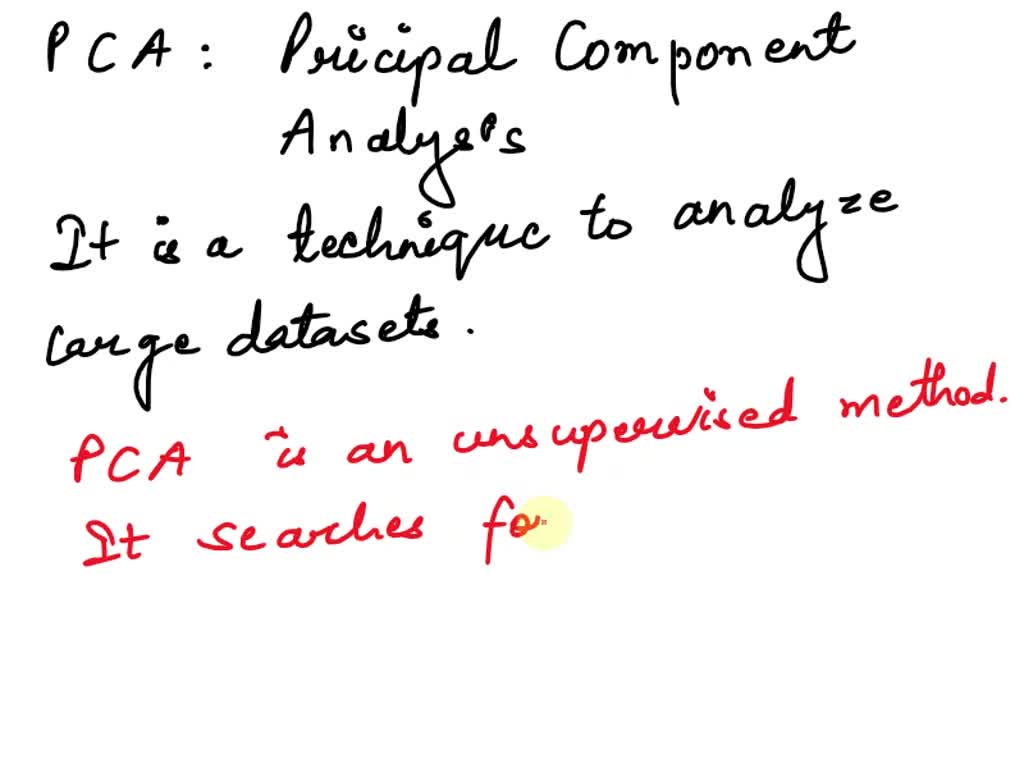 PCA: Pricipal Component
Analysis
It is a technique to analyze
large datasets.
PCA is an unsupervised method.
It searches fo